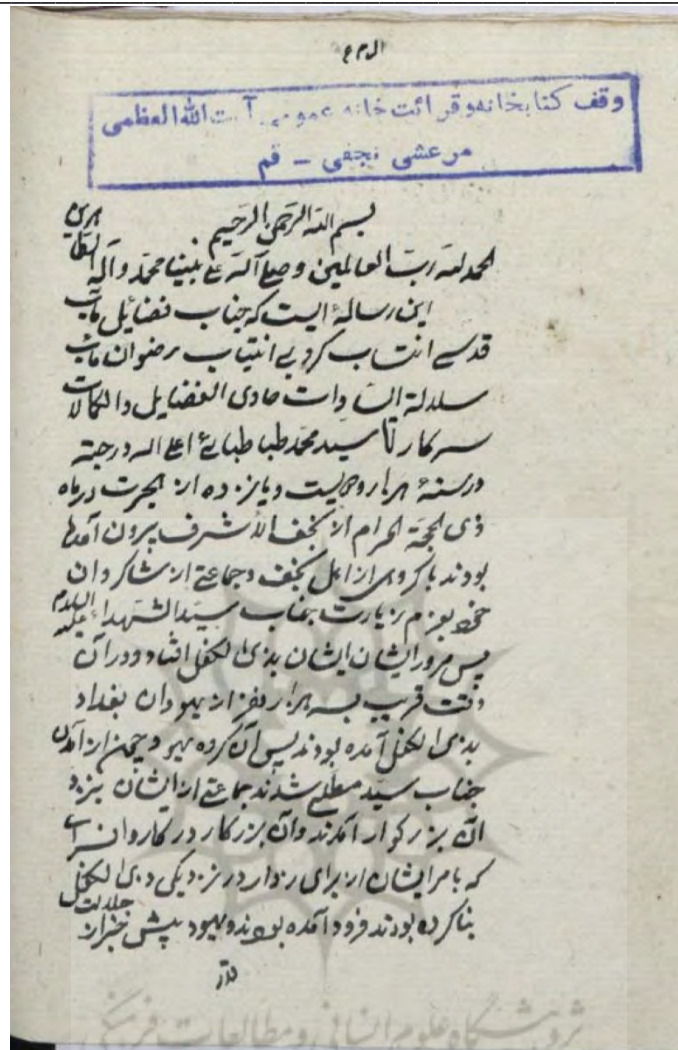 وقف کتابخانه و قرائت خانه عمومی آیت الله العظمی
مرعشی نجفی - قم
بسم الله الرحمن الرحیم
الحمد لله رب العالمین و صلی الله علی نبینا محمد و آله
این رساله ایست که جناب فضایل مآب
قدسی انتساب کروبی انتیاب رضوان مآب
سلالة السادات حاوی الفضایل و الکمالات
سرکار سید محمد طباطبائی اعلی الله درجته
در سنهٔ هزار و دویست و یازده از هجرت در ماه
ذی الحجة الحرام از نجف الاشرف بیرون آمده
بودند با گروهی از اهل نجف و جماعتی از شاگردان
خود بعزم زیارت جناب سید الشهداء علیه السلام
پس مرور ایشان بذی الکفل افتاد و در آن
وقت قریب بسه هزار نفر از یهودان بغداد
بذی الکفل آمده بودند پس آن گروه یهود چون از آمدن
جناب سید مطلع شدند جماعتی از ایشان بنزد
آن بزرگوار آمدند و آن بزرگوار در کاروانسرای
که بامر ایشان از برای زوار در نزدیکی ذی الکفل
بنا کرده بودند فرود آمده بودند و یهود پیش خبر از جلالت
قدر
پژوهشگاه علوم انسانی و مطالعات فرهنگی